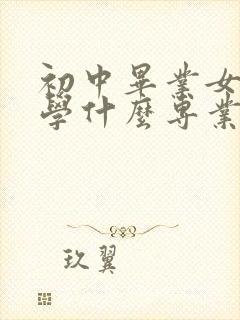 初中畢業女
學什麼專業
玖翼